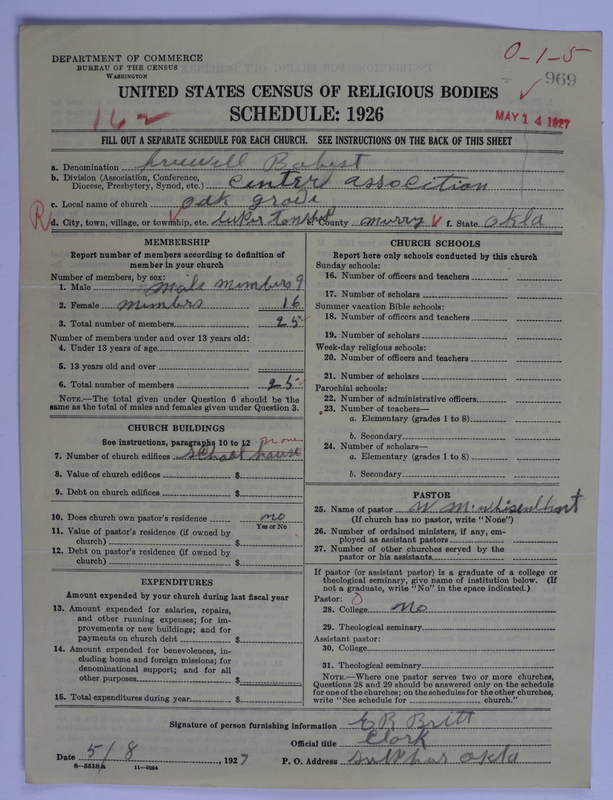 DEPARTMENT OF COMMERCE
BUREAU OF THE CENSUS
WASHINGTON
0-1-5
969
UNITED STATES CENSUS OF RELIGIOUS BODIES
162
SCHEDULE: 1926
MAY 14 1927
FILL OUT A SEPARATE SCHEDULE FOR EACH CHURCH. SEE INSTRUCTIONS ON THE BACK OF THIS SHEET
a. Denomination freewill Babist
b. Division (Association, Conference, Diocese, Presbytery, Synod, etc.) center assocition
c. Local name of church oak grove
R d. City, town, village, or township, etc. e. County murry f. State okla
MEMBERSHIP
Report number of members according to definition of
member in your church
Number of members by sex:
1. Male male mimbers 9
2. Female mimbers 16
3. Total number of members 25
Number of members under and over 13 years old:
4. Under 13 years of age
5. 13 years old and over
6. Total number of members 25
NOTE.—The total given under Question 6 should be the
same as the total of males and females given under Question 3.
CHURCH BUILDINGS
See instructions, paragraphs 10 to 12
7. Number of church edifices School house
8. Value of church edifices $
9. Debt on church edifices $
10. Does church own pastor's residence no
Yes or No
11. Value of pastor's residence (if owned by
church) $
12. Debt on pastor's residence (if owned by
church) $
EXPENDITURES
Amount expended by your church during last fiscal year
13. Amount expended for salaries, repairs,
and other running expenses; for im-
provements or new buildings; and for
payments on church debt $
14. Amount expended for benevolences, in-
cluding home and foreign missions; for
denominational support; and for all
other purposes $
15. Total expenditures during year $
CHURCH SCHOOLS
Report here only schools conducted by this church
Sunday schools:
16. Number of officers and teachers
17. Number of scholars
Summer vacation Bible schools:
18. Number of officers and teachers
19. Number of scholars
Week-day religious schools:
20. Number of officers and teachers
21. Number of scholars
Parochial schools:
22. Number of administrative officers
23. Number of teachers—
a. Elementary (grades 1 to 8)
b. Secondary
24. Number of scholars—
a. Elementary (grades 1 to 8)
b. Secondary
PASTOR
25. Name of pastor W M. Whisenhunt
(If church has no pastor, write "None")
26. Number of ordained ministers, if any, em-
ployed as assistant pastors
27. Number of other churches served by the
pastor or his assistants
If pastor (or assistant pastor) is a graduate of a college or
theological seminary, give name of institution below. (If
not a graduate, write "No" in the space indicated.)
Pastor: 0
28. College No
29. Theological seminary
Assistant pastor:
30. College
31. Theological seminary
NOTE.—Where one pastor serves two or more churches,
Questions 28 and 29 should be answered only on the schedule
for one of the churches; on the schedules for the other churches,
write "See schedule for church."
Signature of person furnishing information E R Britt
Official title Clork
Date 5/8, 1927 P. O. Address Sulphur Okla
8—5518a 11—9034